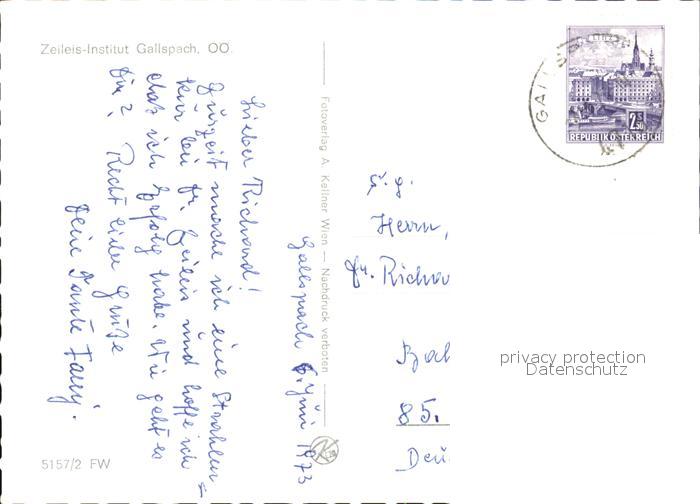 Zeileis-Institut Gallspach, OÖ.
Gallspach 6. Juni 1973
Lieber Richard!
Zurzeit mache ich eine Strahlen=
kur bei Dr. Zeileis und hoffe ich
daß ich Erfolg habe. Wie geht es
Dir? Recht liebe Grüße
Deine Tante Fanny.
5157/2 FW
Fotoverlag A. Kellner Wien — Nachdruck verboten
GALL
2 S 50
REPUBLIK ÖSTERREICH
S. g.
Herrn,
Dr. Richa
Ba
85.
Deu
privacy protection
Datenschutz